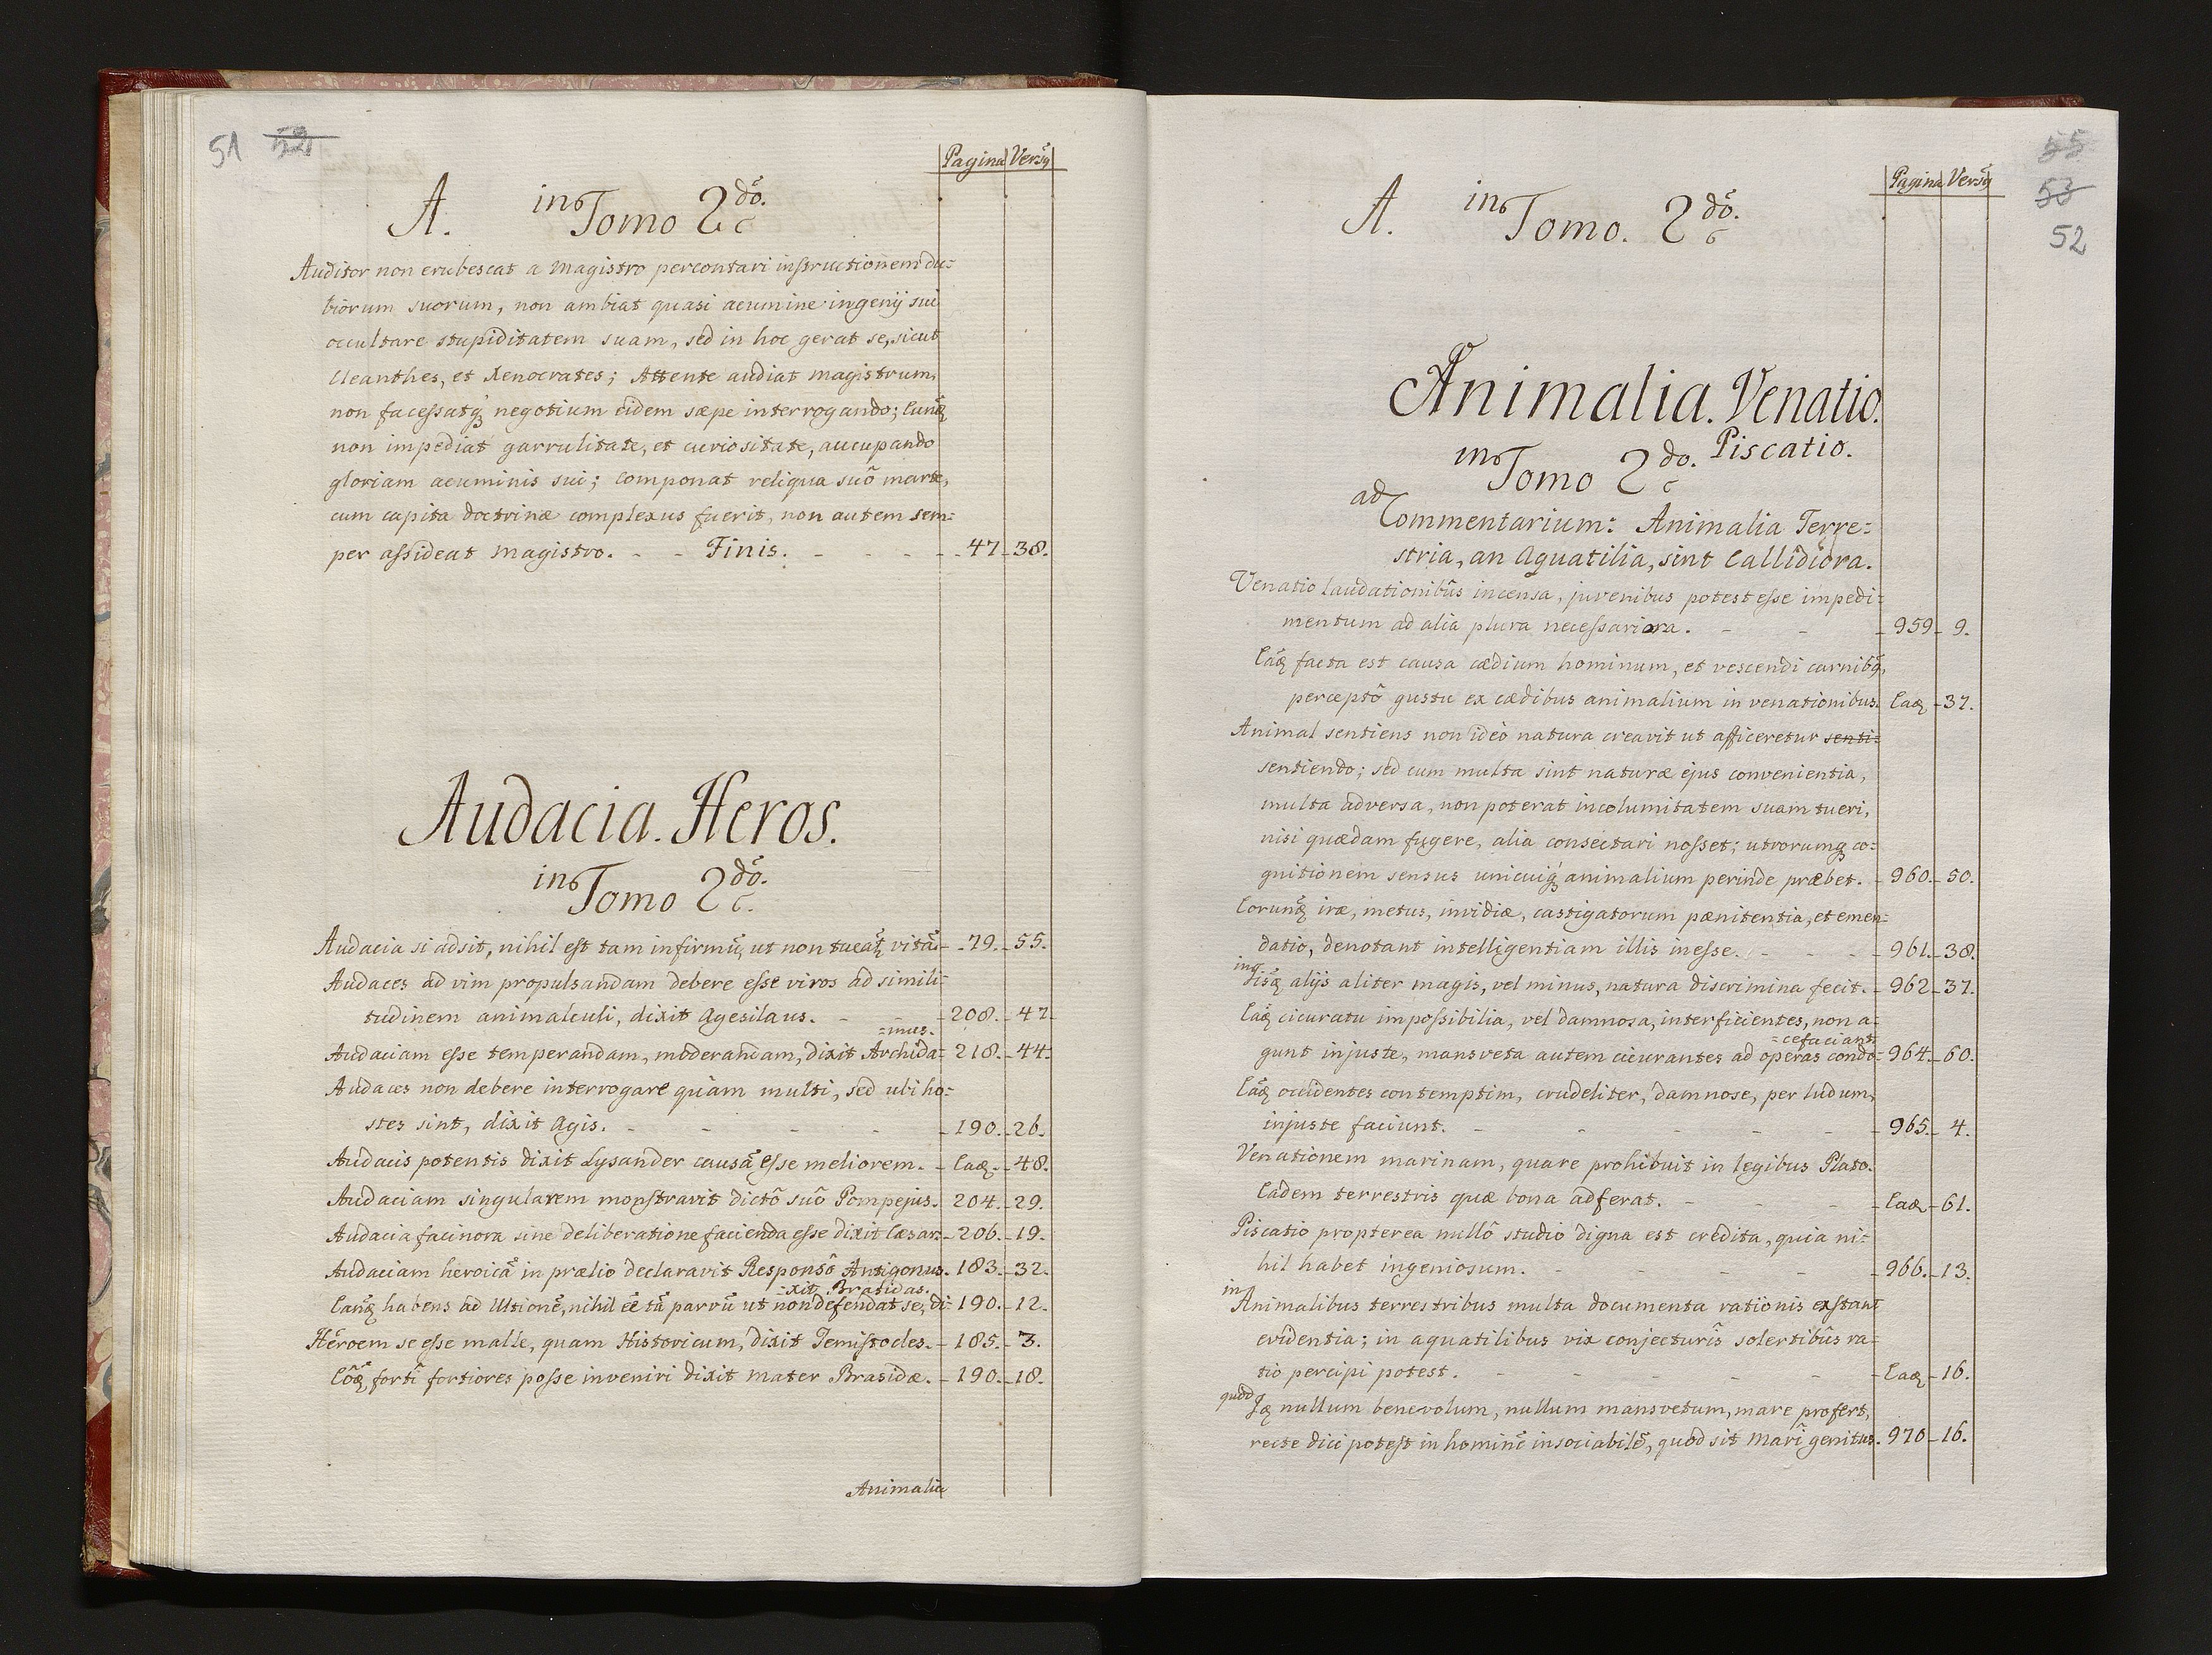 51 52
Pagina Versq
A. in Tomo 2do.
Auditor non erubescat a magistro percontari instructionem du=
biorum suorum, non ambiat quasi acumine ingenij sui
occultare stupiditatem suam, sed in hoc gerat se, sicut
Cleanthes, et Xenocrates; Attente audiat magistrum,
non facessatq negotium eidem sæpe interrogando;
non impediat garrulitate, et curiositate, aucupando
gloriam acuminis sui; componat reliqua suô marte,
cum capita doctrinæ complexus fuerit, non autem sem=
per assideat magistro. - - Finis. - - - - 47 - 38.
Audacia. Heros.
in Tomo 2do.
Audacia si adsit, nihil est tam infirmũ, ut non tueat vitã - 79. - 55.
Audaces ad vim propulsandam debere esse viros ad simili=
tudinem animalculi, dixit Agesilaus. - - - 208. - 47
=mus.
Audaciam esse temperandam, moderandam, dixit Archida= 218. - 44.
Audaces non debere interrogare quàm multi, sed ubi ho=
stes sint, dixit Agis. - - - - - 190. - 26.
Audacis potentis dixit Lysander causã esse meliorem. - Eaq. - 48.
Audaciam singularem monstravit dictô suô Pompejus. 204. - 29.
Audacia facinora sine deliberatione facienda esse dixit Cæsar. - 206. - 19.
Audaciam heroicã in prælio declaravit Responsô Antigonus. 183. - 32.
=xit Brasidas.
Eanq habens ad Ultionẽ, nihil eẽ tã parvũ ut non defendat se, di= 190. - 12.
Heroem se esse malle, quam Historicum, dixit Temistocles. - 185. - 3.
Eôq, forti fortiores posse inveniri dixit mater Brasidæ. - 190. - 18.
Animalia
55
53
52
Pagina Versq
A. in Tomo. 2do.
Animalia. Venatio.
Piscatio.
in Tomo 2do.
ad Commentarium: Animalia Terre=
stria, an Aquatilia, sint Callidiora.
Venatio laudationibûs incensa, juvenibus potest esse impedi=
mentum ad alia plura necessariora. - - - 959 - 9.
Eaq facta est causa cædium hominum, et vescendi carnibq,
perceptô gustu ex cædibus animalium in venationibus. Eaq - 37.
Animal sentiens non ideò natura creavit ut afficeretur senti=
sentiendo; sed cum multa sint naturæ ejus convenientia,
multa adversa, non poterat incolumitatem suam tueri,
nisi quædam fugere, alia consectari nosset; utrorumq co=
gnitionem sensus unicuiq animalium perinde præbet. - 960. - 50.
Eorunq iræ, metus, invidiæ, castigatorum pænitentia, et emen=
datio, denotant intelligentiam illis inesse. - - - 961. - 38.
in Iisq alijs aliter magis, vel minus, natura discrimina fecit. - 962 - 37.
Eaq cicuratu impossibilia, vel damnosa, interficientes, non a=
=cefaciant
gunt injuste, mansveta autem cicurantes ad operas condo= 964. - 60.
Eaq occidentes contemptim, crudeliter, damnose, per ludum,
injuste faciunt. - - - - - 965. - 4.
Venationem marinam, quare prohibuit in legibus Plato.
Eadem terrestris quæ bona adferat. - - - Eaq - 61.
Piscatio propterea nullô studio digna est credita, quia ni=
hil habet ingeniosum. - - - - - 966. - 13.
in Animalibus terrestribus multa documenta rationis exstant
evidentia; in aquatilibus vix conjecturîs solertibûs ra=
tio percipi potest. - - - - - - Eaq - 16.
quòd Iq nullum benevolum, nullum mansvetum, mare profert,
recte dici potest in hominẽ insociabilẽ, quòd sit mari genitus. 970 - 16.